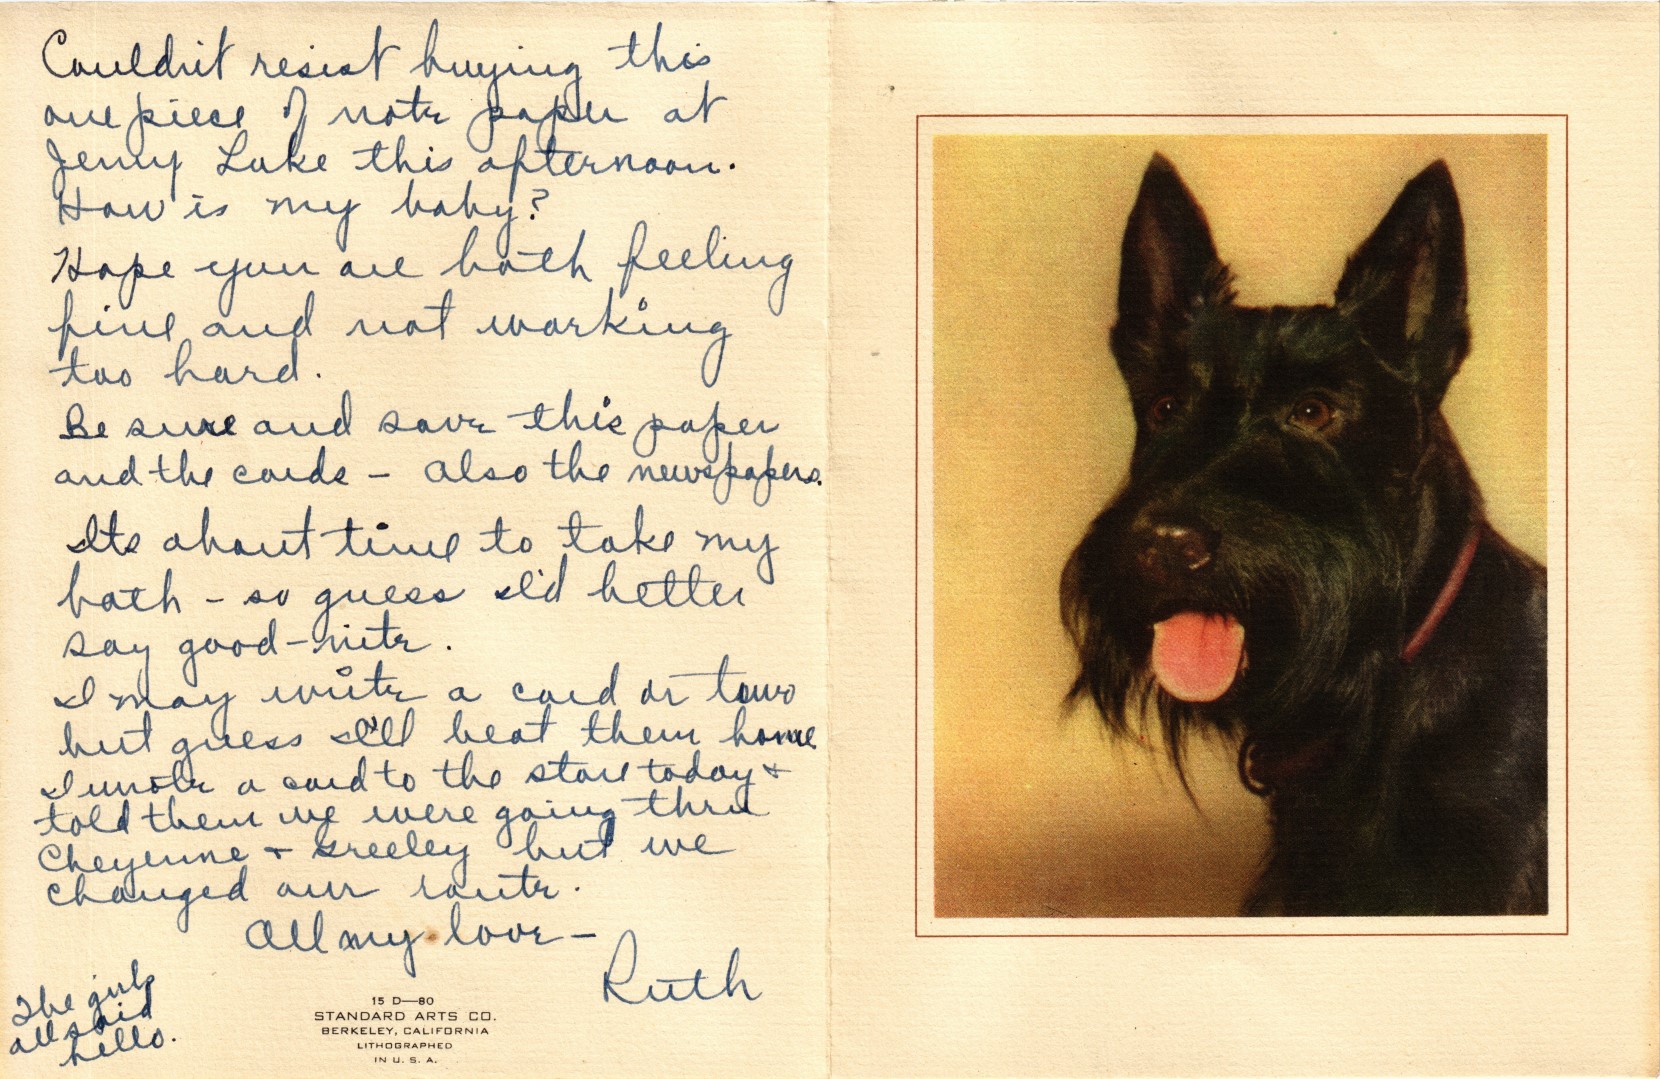 Couldn't resist buying this
one piece of note paper at
Jenny Lake this afternoon.
How is my baby?
Hope you are both feeling
fine and not working
too hard.
Be sure and save this paper
and the cards - also the newspapers.
Its about time to take my
bath - so guess I'd better
say good-nite.
I may write a card or two
but guess I'll beat them home
I wrote a card to the store today +
told them we were going thru
Cheyenne + Greeley but we
changed our route.
All my love -
Ruth
The girls
all said
hello.
15 D—80
STANDARD ARTS CO.
BERKELEY, CALIFORNIA
LITHOGRAPHED
IN U. S. A.